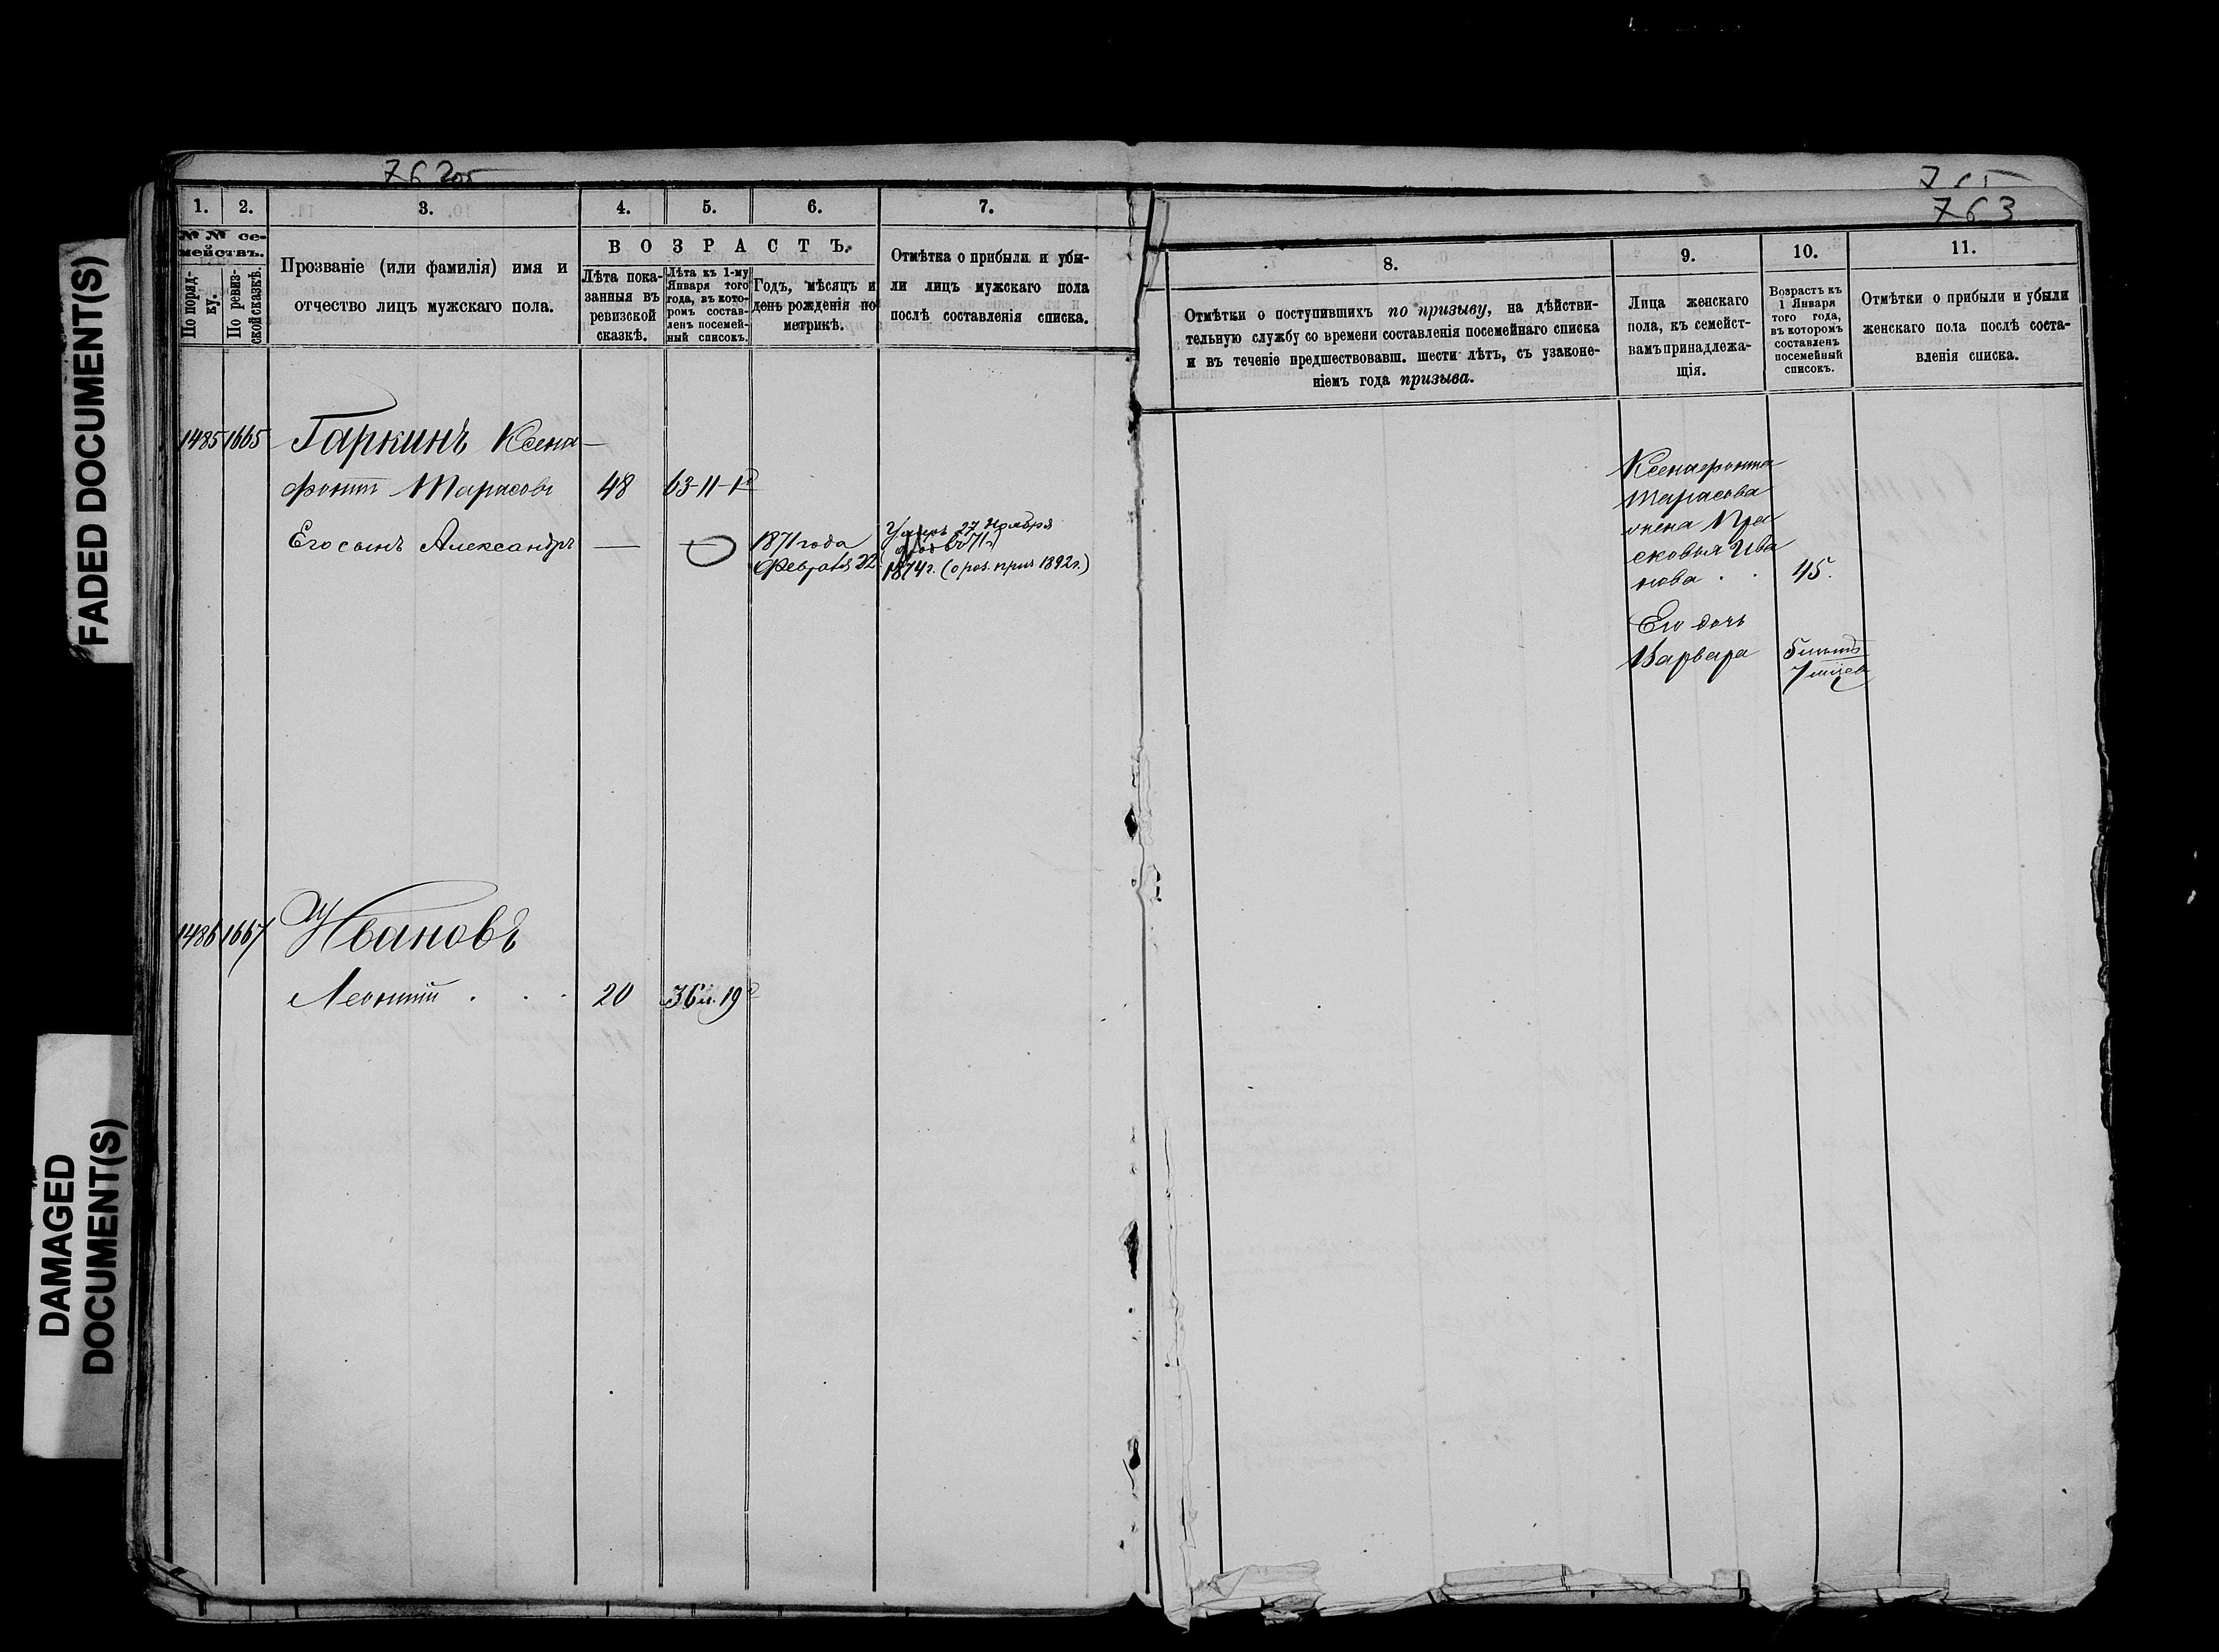 FADED DOCUMENT(S)
DAMAGED
DOCUMENT(S)
762об
765
763
1.
2.
3.
4.
5.
6.
7.
№ № се-
мействъ.
По поряд-
ку.
По ревиз-
ской сказкѣ.
Прозваніе (или фамилія) имя и
отчество лицъ мужскаго пола.
ВОЗРАСТЪ.
Лѣта пока-
занныя въ
ревизской
сказкѣ.
Лѣта къ 1-му
Января того
года, въ кото-
ромъ состав-
ленъ посемей-
ный списокъ.
Годъ, мѣсяцъ и
день рожденія по
метрикѣ.
Отмѣтка о прибыли и убы-
ли лицъ мужскаго пола
послѣ составленія списка.
1485 1665 Гаркинъ Ксена-
фонтъ Тарасовъ 48 63-11-1д
Его сынъ Александръ — — 1871 года
Февраля 22
27 Ноября
1874г. (о роз. приз 1892г.)
1486 1667 Ивановъ
Леонтій . . . 20 36л. 19д
8.
9.
10.
11.
Отмѣтки о поступившихъ по призыву, на дѣйстви-
тельную службу со времени составленія посемейнаго списка
и въ теченіе предшествовавш. шести лѣтъ, съ узаконе-
ніемъ года призыва.
Лица женскаго
пола, къ семейст-
вамъ принадлежа-
щія.
Возрастъ къ
1 Января
того года,
въ которомъ
составленъ
посемейный
списокъ.
Отмѣтки о прибыли и убыли
женскаго пола послѣ соста-
вленія списка.
Ксенафонта
Тарасова
жена Пра
сковья Ива
нова . . 45.
Его дочь
Варвара 5 лѣтъ
7 мѣсев